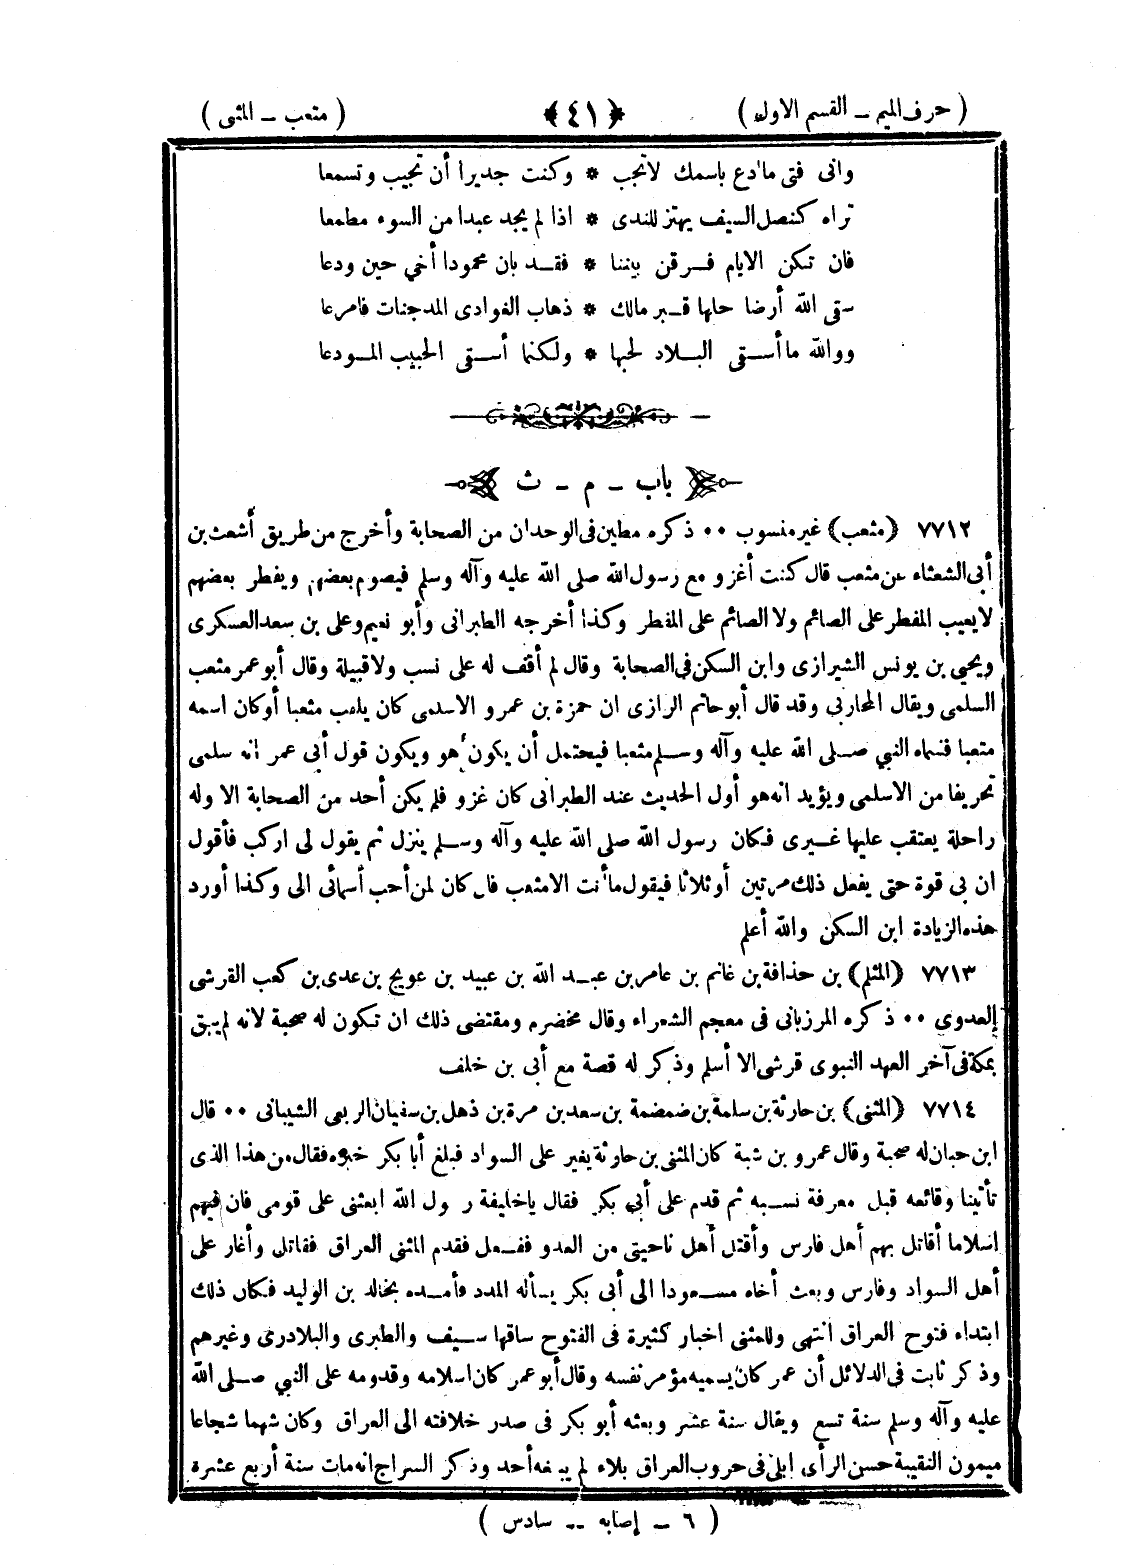 ( حرف الميم – القسم الاول ) ﴿ ٤١ ﴾ ( متعب – المثنى )
وانى فتى ما ادع باسمك لا تجب * وكنت جديرا أن تجيب وتسمعا
تراه كنصل السيف يهتز للندى * اذا لم يجد عبدا من السوء مطمعا
فان تكن الايام فرقن بيننا * فقد بان محمودا أخي حين ودعا
سقى الله أرضا حلها قبر مالك * ذهاب الغوادى المدجنات فامرعا
ووالله ما أسقى البلاد لحبها * ولكنما أسقى الحبيب المودعا
باب – م – ث
٧٧١٢ (مثعب) غير منسوب ٠٠ ذكره مطين فى الوحدان من الصحابة وأخرج من طريق أشعث بن
أبى الشعثاء عن مثعب قال كنت أغزو مع رسول الله صلى الله عليه وآله وسلم فيصوم بعضهم ويفطر بعضهم
لا يعيب المفطر على الصائم ولا الصائم على المفطر وكذا أخرجه الطبرانى وأبو نعيم وعلى بن سعد العسكرى
ويحيي بن يونس الشيرازى وابن السكن فى الصحابة وقال لم أقف له على نسب ولا قبيلة وقال أبو عمر مثعب
السلمى ويقال المحاربى وقد قال أبو حاتم الرازى ان حمزة بن عمرو الاسلمى كان يلقب مثعبا أو كان اسمه
متعبا فسماه النبي صلى الله عليه وآله وسلم مثعبا فيحتمل أن يكون هو ويكون قول أبى عمر انه سلمى
تحريفا من الاسلمى ويؤيد انه هو أول الحديث عند الطبرانى كان غزو فلم يكن أحد من الصحابة الا وله
راحلة يعتقب عليها غيرى فكان رسول الله صلى الله عليه وآله وسلم ينزل ثم يقول لى اركب فأقول
ان بى قوة حتى يفعل ذلك مرتين أو ثلاثا فيقول ما أنت الا مثعب قال كان لمن أحب أسمائى الى وكذا أورد
هذه الزيادة ابن السكن والله أعلم
٧٧١٣ (المثلم) بن حذافة بن غانم بن عامر بن عبد الله بن عبيد بن عويج بن عدى بن كعب القرشى
العدوى ٠٠ ذكره المرزبانى فى معجم الشعراء وقال مخضرم ومقتضى ذلك ان تكون له صحبة لانه لم يبق
بمكة فى آخر العهد النبوى قرشى الا أسلم وذكر له قصة مع أبى بن خلف
٧٧١٤ (المثنى) بن حارثة بن سلمة بن ضمضمة بن سعد بن مرة بن ذهل بن سفيان الربعى الشيبانى ٠٠ قال
ابن حبان له صحبة وقال عمرو بن شبة كان المثنى بن حارثة يغير على السواد فبلغ أبا بكر خبره فقال من هذا الذى
تأتينا وقائعه قبل معرفة نسبه ثم قدم على أبى بكر فقال يا خليفة رسول الله ابعثنى على قومى فان فيهم
اسلاما أقاتل بهم أهل فارس وأقتل أهل ناحيتى من العدو ففعل فقدم المثنى العراق فقاتل وأغار على
أهل السواد وفارس وبعث أخاه مسعودا الى أبى بكر يسأله المدد فأمده بخالد بن الوليد فكان ذلك
ابتداء فتوح العراق انتهى وللمثنى اخبار كثيرة فى الفتوح ساقها سيف والطبرى والبلاذرى وغيرهم
وذكر ثابت فى الدلائل أن عمر كان يسميه مؤمر نفسه وقال أبو عمر كان اسلامه وقدومه على النبي صلى الله
عليه وآله وسلم سنة تسع ويقال سنة عشر وبعثه أبو بكر فى صدر خلافته الى العراق وكان شهما شجاعا
ميمون النقيبة حسن الرأى ابلى فى حروب العراق بلاء لم يبلغه أحد وذكر السراج انه مات سنة أربع عشرة
( ٦ – إصابه -- سادس )